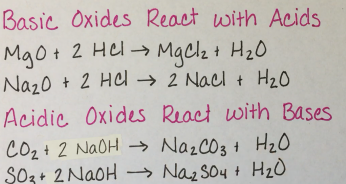 Basic Oxides React with Acids
MgO + 2 HCl → MgCl₂ + H₂O
Na₂O + 2 HCl → 2 NaCl + H₂O
Acidic Oxides React with Bases
CO₂ + 2 NaOH → Na₂CO₃ + H₂O
SO₃ + 2 NaOH → Na₂SO₄ + H₂O